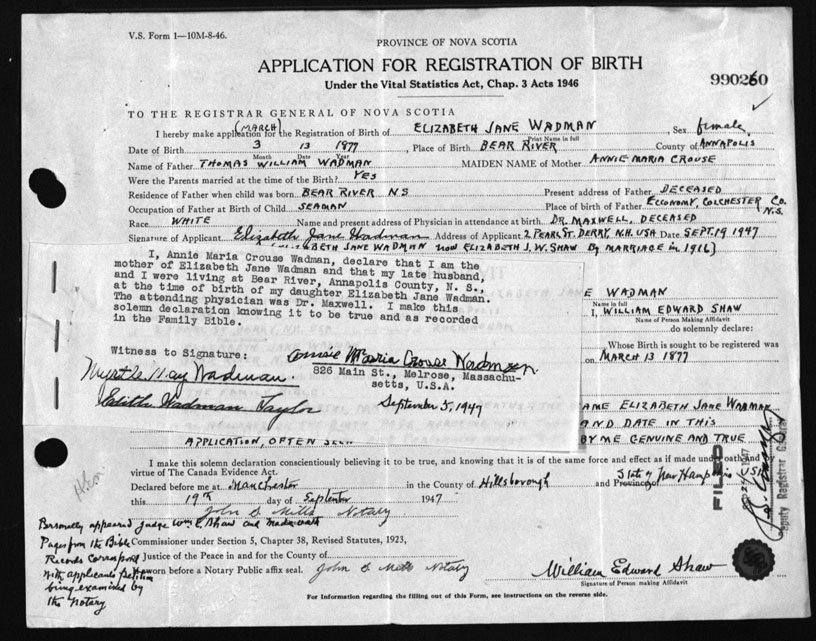 V.S. Form 1—10M-8-46.
PROVINCE OF NOVA SCOTIA
APPLICATION FOR REGISTRATION OF BIRTH
Under the Vital Statistics Act, Chap. 3 Acts 1946
990260
TO THE REGISTRAR GENERAL OF NOVA SCOTIA
(MARCH)
I hereby make application for the Registration of Birth of ELIZABETH JANE WADMAN, Sex female
Print Name in full
Date of Birth 3 13 1877, Place of Birth BEAR RIVER County of ANNAPOLIS
Month Date Year
Name of Father THOMAS WILLIAM WADMAN MAIDEN NAME of Mother ANNIE MARIA CROUSE
Were the Parents married at the time of the Birth? YES
Residence of Father when child was born BEAR RIVER NS Present address of Father DECEASED
Occupation of Father at Birth of Child SEAMAN Place of birth of Father ECONOMY, COLCHESTER CO. N.S.
Race WHITE Name and present address of Physician in attendance at birth DR. MAXWELL, DECEASED
Signature of Applicant Elizabeth Jane Wadman Address of Applicant 2 PEARL ST. DERRY, N.H. USA Date SEPT. 19 1947
ELIZABETH JANE WADMAN NOW ELIZABETH J. W. SHAW BY MARRIAGE IN 1916)
I, Annie Maria Crouse Wadman, declare that I am the
mother of Elizabeth Jane Wadman and that my late husband,
and I were living at Bear River, Annapolis County, N. S.,
at the time of birth of my daughter Elizabeth Jane Wadman.
The attending physician was Dr. Maxwell. I make this
solemn declaration knowing it to be true and as recorded
in the Family Bible.
Witness to Signature: Annie Maria Crouse Wadman
826 Main St., Melrose, Massachu-
setts, U.S.A.
Myrtle May Wadman
Edith Wadman Taylor September 5, 1947
WADMAN
Name in full
I, WILLIAM EDWARD SHAW
Name of Person Making Affidavit
do solemnly declare:
Whose Birth is sought to be registered was
on MARCH 13 1877
NAME ELIZABETH JANE WADMAN
AND DATE IN THIS
APPLICATION, OFTEN SEEN BY ME GENUINE AND TRUE
I make this solemn declaration conscientiously believing it to be true, and knowing that it is of the same force and effect as if made under oath and by
virtue of The Canada Evidence Act.
Declared before me at Manchester in the County of Hillsborough and Province of State of New Hampshire
this 19th day of September 1947
John S Mills Notary
Personally appeared Judge Wm E. Shaw and made oath
Pages from the Bible
Records Correspond
with applicants
being examined by
the Notary
Commissioner under Section 5, Chapter 38, Revised Statutes, 1923,
Justice of the Peace in and for the County of
If sworn before a Notary Public affix seal. John S Mills Notary
William Edward Shaw
Signature of Person making Affidavit
For Information regarding the filling out of this Form, see instructions on the reverse side.
FILED
Deputy Registrar General